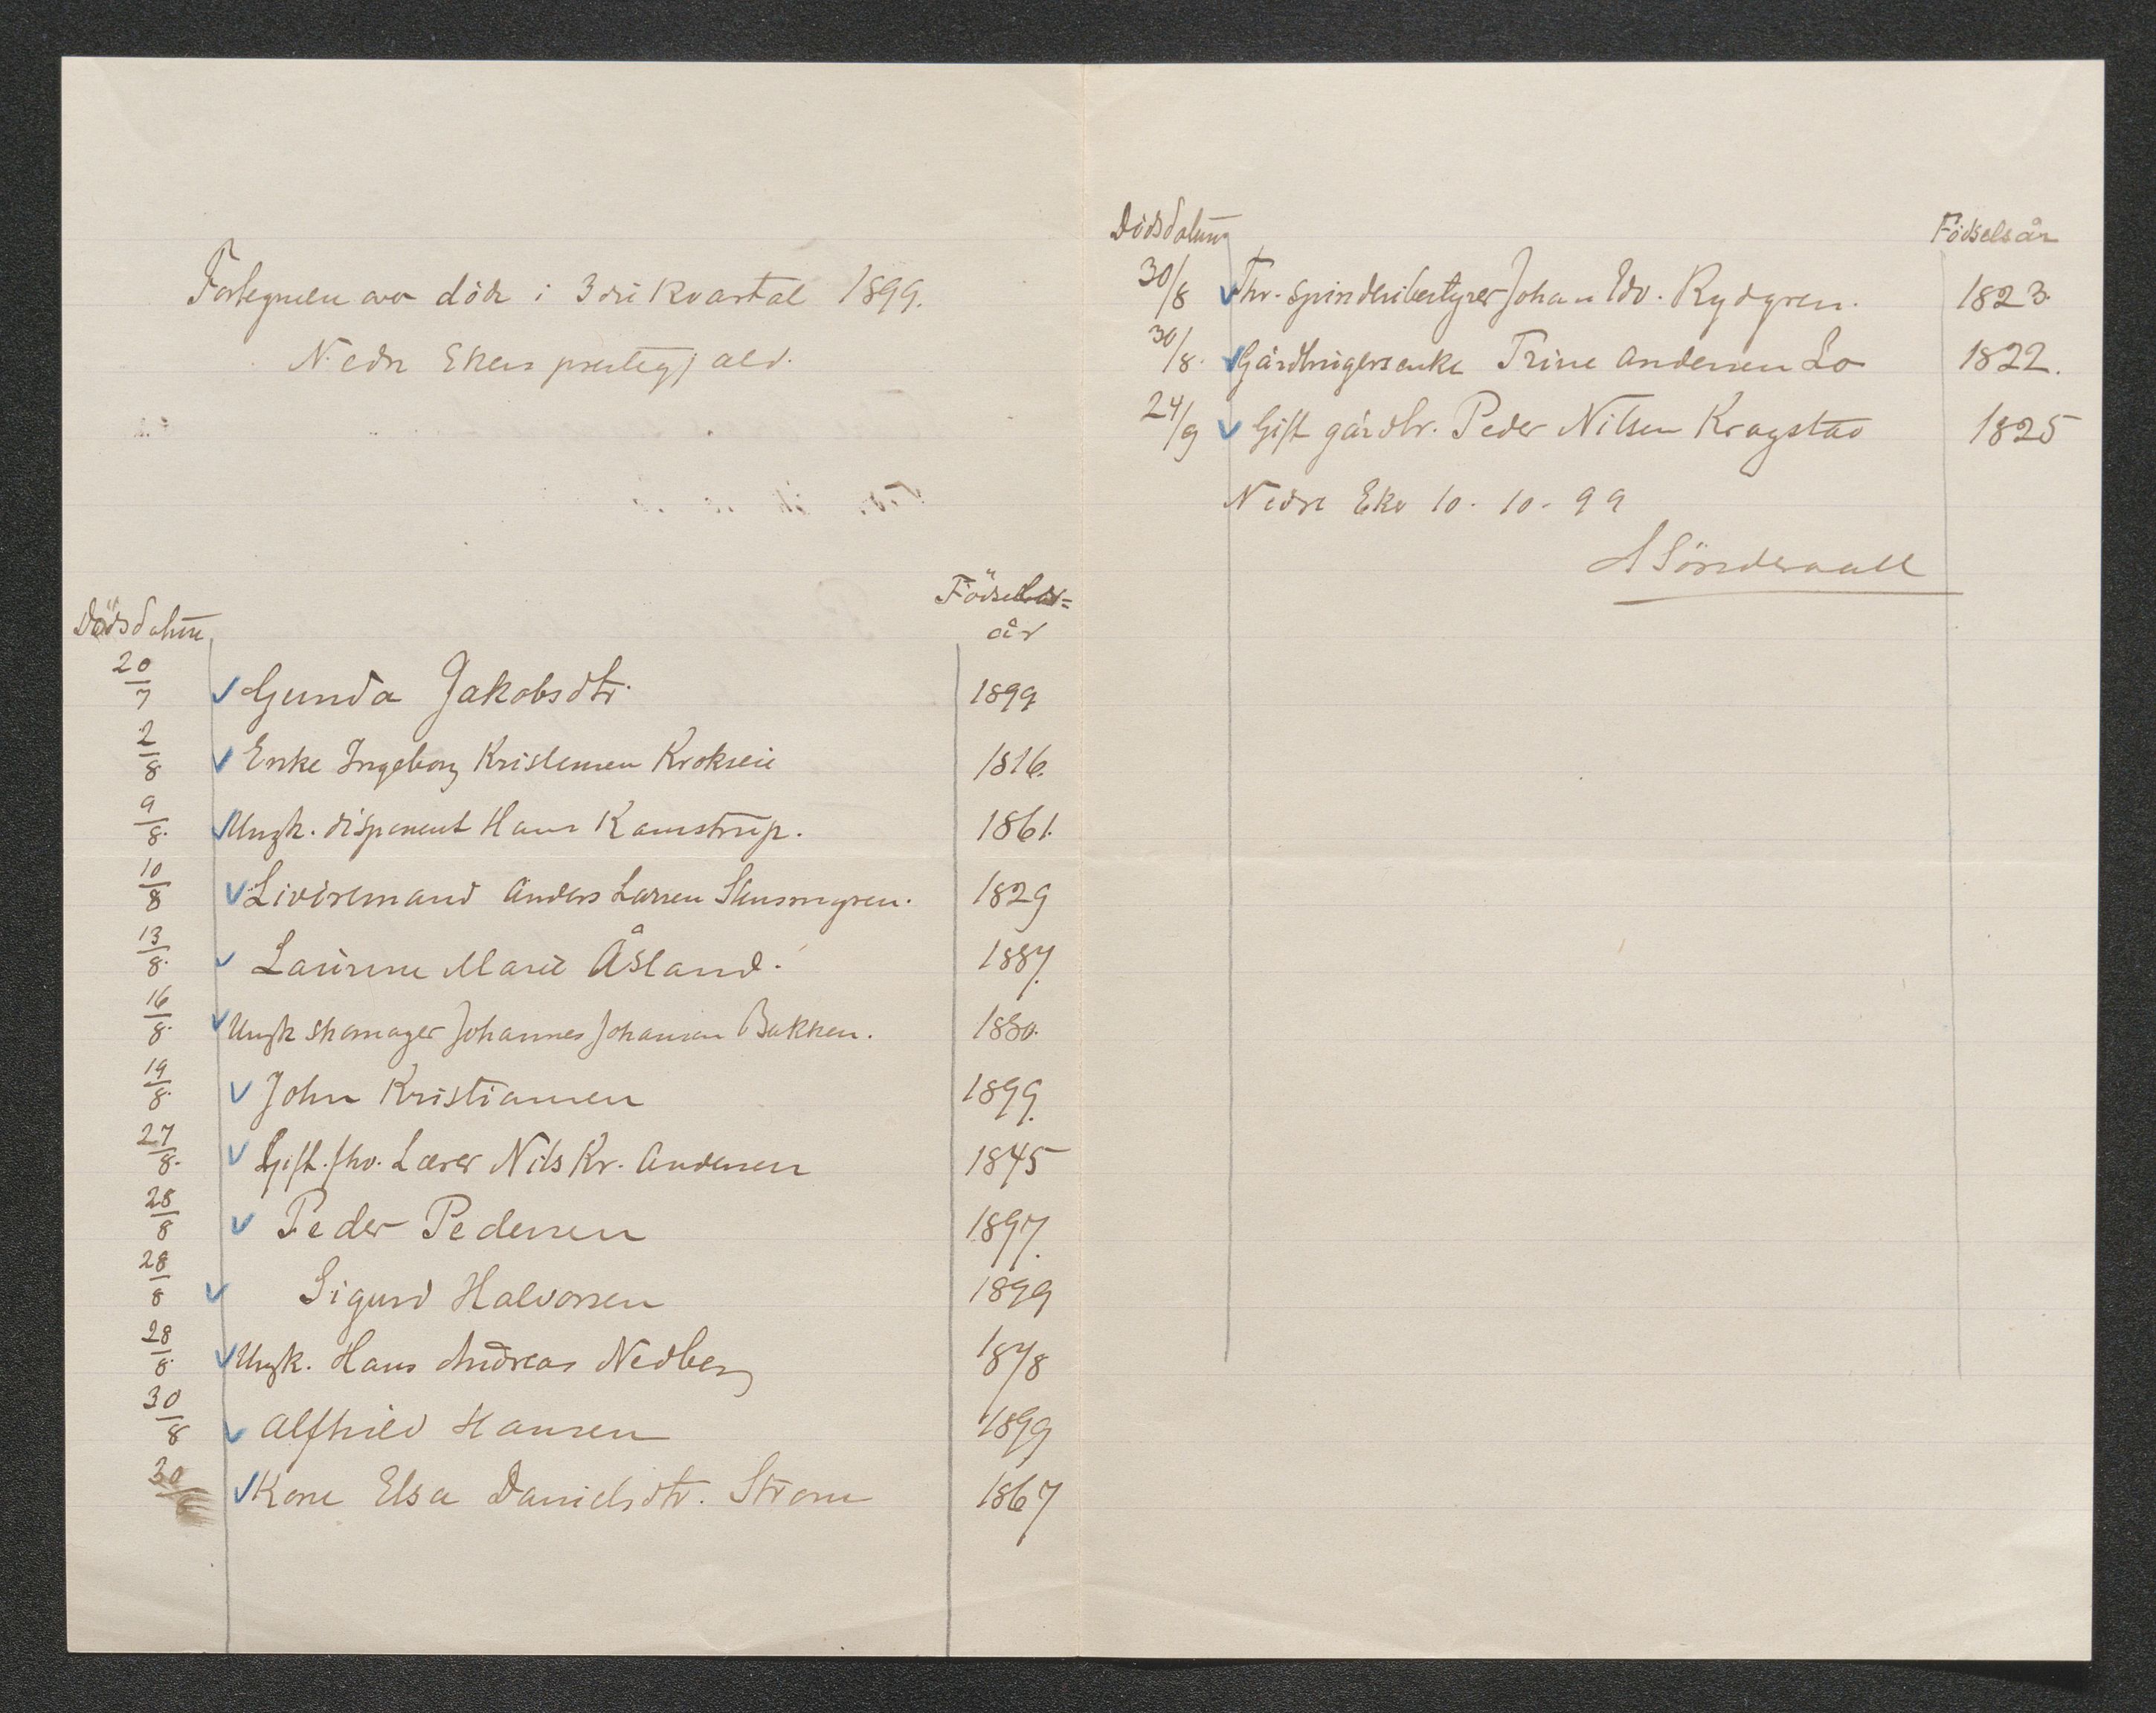 Fortegnelse over döde i 3die Kvartal 1899.
Nedre Ekers prestegjæld.
Dødsdatum Födsels=
år
20/7 Gunda Jakobsdtr. 1899
2/8 Enke Ingeborg Kristensen Krokseie 1816.
9/8. Ungk. disponent Hans Kamstrup. 1861.
10/8 Livöremand Anders Larsen 1829
13/8. Laurine Marie Åsland. 1887.
16/8. Ungk skomager Johannes Johansen Bakken. 1880.
19/8. John Kristiansen 1899.
27/8. Gift. fhv. Lærer Nils Kr. Andersen 1845
28/8 Peder Pedersen 1897.
28/8 Sigurd Halvorsen 1899
28/8. Ungk. Hans Andreas Nedberg 1878
30/8 Alfhild Hansen 1899
30/8 Kone Elsa Danielsdtr. Strøm 1867
Dødsdatum Födselsår
30/8 Fhv. Spinderibestyrer Johan Edv. Rydgren. 1823.
30/8. Gårdbrugerenke Trine Andersen Lo 1822.
24/9 Gift gårdbr. Peder Nilsen Kragstad 1825
Nedre Eker 10-10-99